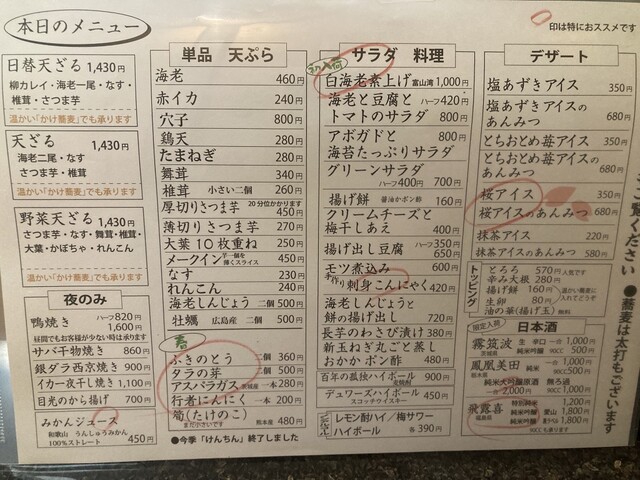 本日のメニュー
印は特におススメです
日替天ざる 1,430円
柳カレイ・海老一尾・なす・
椎茸・さつま芋
温かい「かけ蕎麦」でも承ります
天ざる 1,430円
海老二尾・なす
さつま芋・椎茸
温かい「かけ蕎麦」でも承ります
野菜天ざる 1,430円
さつま芋・なす・舞茸・椎茸・
大葉・かぼちゃ・れんこん
温かい「かけ蕎麦」でも承ります
夜のみ
鴨焼き ハーフ820円
1,600円
昼間でもお客様が少ない時は承ります
サバ干物焼き 860円
銀ダラ西京焼き 900円
イカ一夜干し焼き 1,100円
目光のから揚げ 700円
みかんジュース
和歌山 うんしゅうみかん
100%ストレート 450円
単品 天ぷら
海老 460円
赤イカ 240円
穴子 800円
鶏天 280円
たまねぎ 280円
舞茸 340円
椎茸 小さい二個 260円
厚切りさつま芋 20分位かかります 450円
薄切りさつま芋 270円
大葉10枚重ね 250円
メークイン 芋一個を薄くスライス 450円
なす 230円
れんこん 240円
海老しんじょう 二個 500円
牡蠣 広島産 二個 500円
春
ふきのとう 二個 360円
タラの芽 二個 500円
アスパラガス 一本 280円
行者にんにく 一本 200円
筍(たけのこ) 熊本産 480円
まだ小さいです
●今季「けんちん」終了しました
サラダ 料理
白海老素上げ 富山湾 1,000円
海老と豆腐と
トマトのサラダ ハーフ420円
800円
アボガドと
海苔たっぷりサラダ 800円
グリーンサラダ
ハーフ400円 700円
揚げ餅 醤油かポン酢 160円
クリームチーズと
梅干しあえ 400円
揚げ出し豆腐 ハーフ350円
650円
モツ煮込み 600円
手作り 刺身こんにゃく 420円
海老しんじょうと
餅の揚げ出し 720円
長芋のわさび漬け 380円
新玉ねぎ丸ごと蒸し
おかかポン酢 480円
百年の孤独ハイボール 900円
麦焼酎
デュワーズハイボール 450円
スコッチウイスキー
レモン酎ハイ/梅サワー
ハイボール 各390円
デザート
塩あずきアイス 350円
塩あずきアイス
のあんみつ 680円
とちおとめ苺アイス 350円
とちおとめ苺アイスの
あんみつ 680円
桜アイス 350円
桜アイスのあんみつ 680円
抹茶アイス 220円
抹茶アイスのあんみつ 580円
トッピング
とろろ 570円 人気です
辛み大根 280円
揚げ餅 160円
生卵 80円
油の華(揚げ玉) 無料
温かい蕎麦に
入れてどうぞ
限定入荷
日本酒
霧筑波 生 辛口 一合 1,000円
茨城県 純米吟醸 90CC 500円
鳳凰美田 純米 一合
栃木県 純米大吟醸原酒 無ろ過
一合 2,000円 90CC 1,000円
飛露喜 特別純米 1,200円
福島県 純米吟醸 愛山 1,800円
純米吟醸 1,800円
90CCも承ります
ご覧ください
●蕎麦は太打もございます